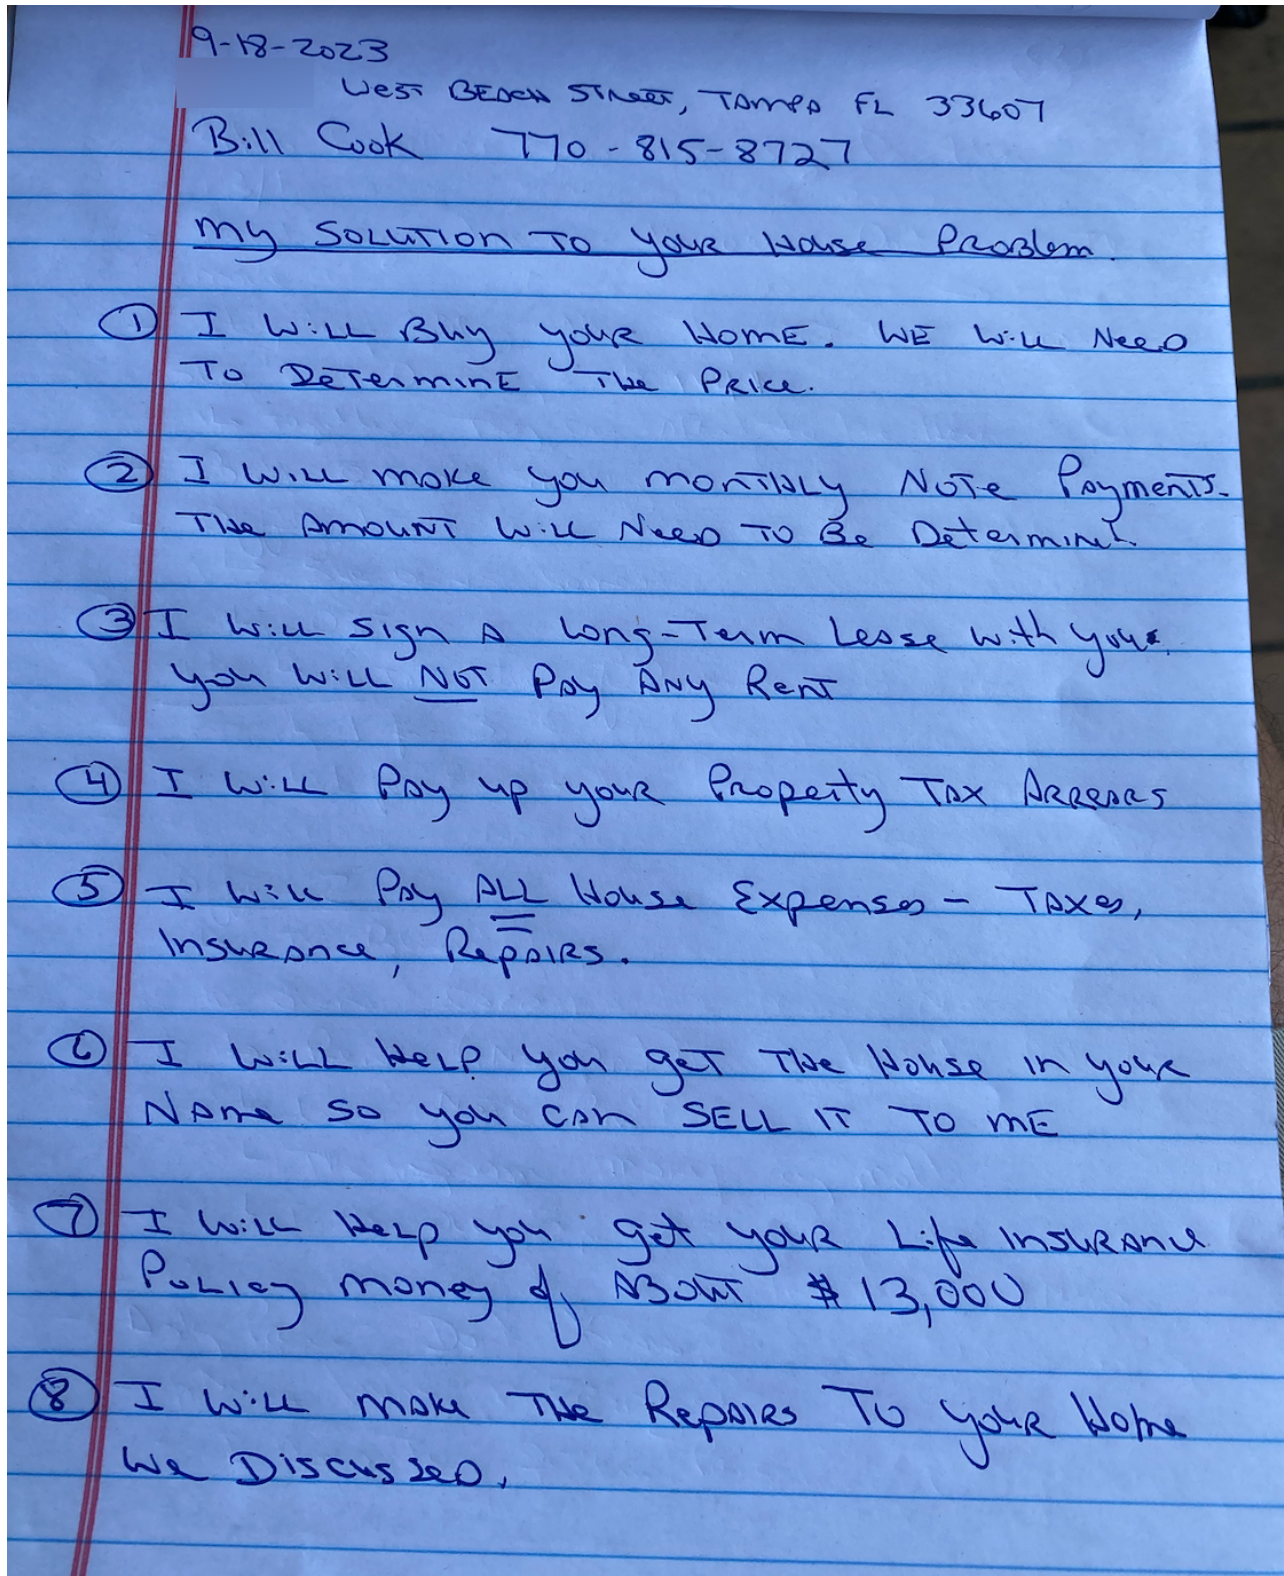 9-18-2023
West Beach Street, Tampa FL 33607
Bill Cook 770-815-8727
My Solution To Your House Problem.
① I Will Buy your Home. We Will Need
To Determine The Price.
② I Will make you monthly Note Payments.
The Amount Will Need To Be Determined.
③ I Will Sign A Long-Term Lease with you.
you Will NOT Pay Any Rent
④ I Will Pay up your Property Tax Arrears
⑤ I Will Pay ALL House Expenses - Taxes,
Insurance, Repairs.
⑥ I Will Help you get The House in your
Name so you can SELL IT TO ME
⑦ I Will Help you get your Life Insurance
Policy money of About $13,000
⑧ I Will make The Repairs To your Home
We Discussed.